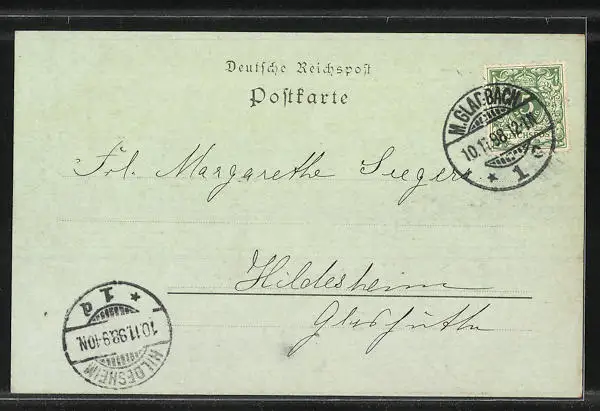 Deutsche Reichspost
Postkarte
M.GLADBACH 2
10.11.98.12-1N
* 1 c
Frl. Margarethe Siegers
Hildesheim
Glashütte
* 1 a
10.11.98.9-10N.
HILDESHEIM